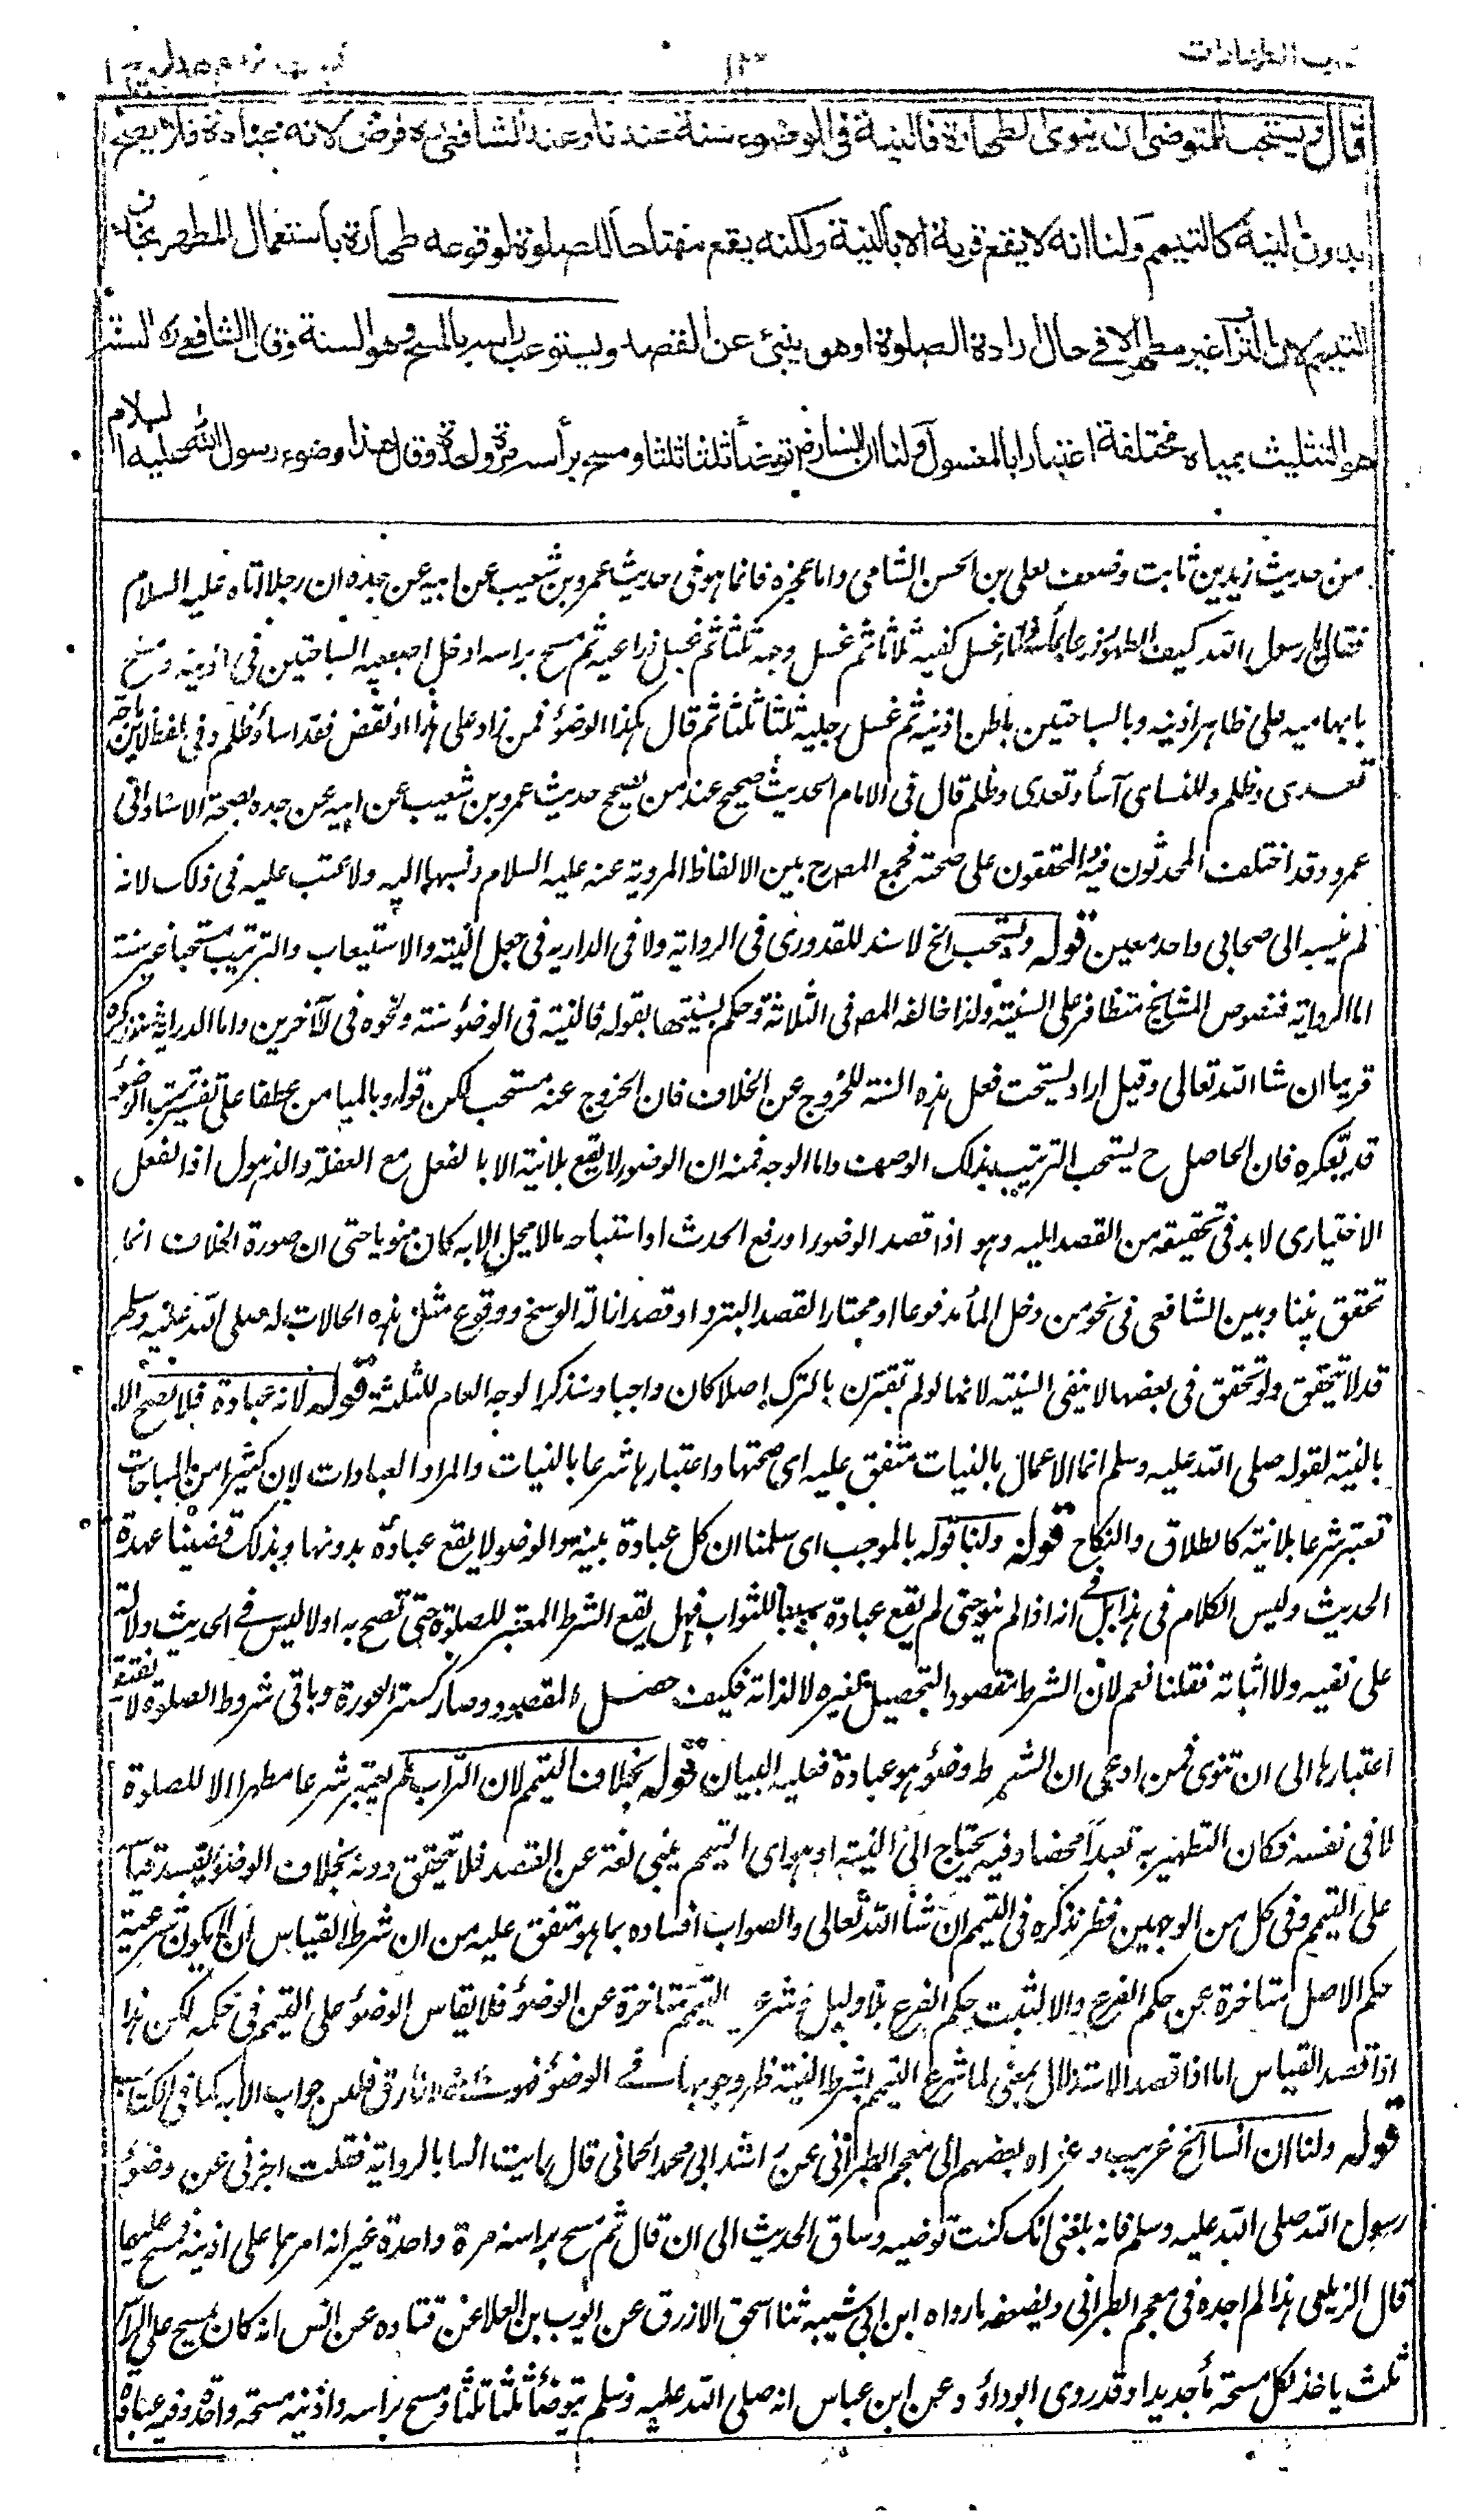 كتاب الطهارات ١٣ فتح القدير مع الهداية ج ١
قال ويستحب للمتوضئ ان ينوى الطهارة فالنية فى الوضوء سنة عندنا وعند الشافعى رح فرض لانه عبادة فلا يصح
بدون النية كالتيمم ولنا انه لا يقع قربة الا بالنية ولكنه يقع مفتاحا للصلوة لوقوعه طهارة باستعمال المطهر بخلاف
التيمم لان التراب غير مطهر الا في حال ارادة الصلوة او هو ينبئ عن القصد ويستوعب راسه بالمسح وهو السنة وقال الشافعى رح السنة
هو التثليث بمياه مختلفة اعتبارا بالمغسول ولنا ان انسا رض توضأ ثلثا ثلثا ومسح برأسه مرة واحدة وقال هذا وضوء رسول الله عليه السلام
من حديث زيد بن ثابت وضعف لعلى بن الحسن الشامى واما عجزه فانما هو فى حديث عمرو بن شعيب عن ابيه عن جده ان رجلا اتاه عليه السلام
فقال يا رسول الله كيف الطهور فدعا بماء فى اناء فغسل كفيه ثلاثا ثم غسل وجهه ثلثا ثم غسل ذراعيه ثم مسح براسه ادخل اصبعيه السباحتين فى اذنيه ومسح
بابهاميه على ظاهر اذنيه وبالسباحتين باطن اذنيه ثم غسل رجليه ثلثا ثلثا ثم قال هكذا الوضوء فمن زاد على هذا او نقص فقد اساء وظلم وفى لفظ لابن ماجه
تعدى وظلم وللنسائى اساء وتعدى وظلم قال فى الامام الحديث صحيح عند من يصحح حديث عمرو بن شعيب عن ابيه عن جده لصحة الاسناد الى
عمرو وقد اختلف المحدثون فيه والمحققون على صحته فجمع المصرح بين الالفاظ المروية عنه عليه السلام ونسبها اليه ولا عتب عليه فى ذلك لانه
لم ينسبه الى صحابى واحد معين قوله ويستحب الخ لا سند للقدورى فى الرواية ولا فى الدراية فى جعل النية والاستيعاب والترتيب مستحبا غير سنة
اما الرواية فنصوص المشايخ متظافرة على السنية ولذا خالفه المص فى الثلاثة وحكم بسنيتها بقوله فالنية فى الوضوء سنة ونحوه فى الآخرين واما الدراية فسنذكره
قريبا ان شاء الله تعالى وقيل اراد يستحب فعل هذه السنة للخروج عن الخلاف فان الخروج عنه مستحب لكن قوله وبالميامن عطفا على تفسير ترتيب الوضوء
قد يعكره فان الحاصل ح يستحب الترتيب بذلك الوصف واما الوجه فمنه ان الوضوء لا يقع بلا نية الا بالفعل مع الغفلة والذهول اذ الفعل
الاختيارى لا بد فى تحقيقه من القصد اليه وهو اذا قصد الوضوء او رفع الحدث او استباحة ما لا يحل الا به كان منويا حتى ان صورة الخلاف انما
تحقق بيننا وبين الشافعى فى نحو من دخل الماء مدفوعا او مختارا لقصد التبرد او قصد ازالة الوسخ ووقوع مثل هذه الحالات له صلى الله عليه وسلم
قد لا يتحقق ولو تحقق فى بعضها لا ينفى السنية لانها لو لم تقترن بالترك اصلا كان واجبا وسنذكر الوجه العام للثلثة قوله لانه عبادة فلا يصح الا
بالنية لقوله صلى الله عليه وسلم انما الاعمال بالنيات متفق عليه اى صحتها واعتبارها شرعا بالنيات والمراد العبادات لان كثيرا من المباحات
تعتبر شرعا بلا نية كالطلاق والنكاح قوله ولنا قوله بالموجب اى سلمنا ان كل عبادة بنية والوضوء لا يقع عبادة بدونها وبذلك قضينا عهدة
الحديث وليس الكلام فى هذا بل فى انه اذا لم ينو حتى لم يقع عبادة سببا للثواب فهل يقع الشرط المعتبر للصلوة حتى تصح به او لا ليس فى الحديث دلالة
على نفيه ولا اثباته فقلنا نعم لان الشرط مقصود التحصيل لغيره لا لذاته فكيف حصل المقصود وصار كستر العورة وباقى شروط الصلوة لا يفتقر
اعتبارها الى ان تنوى فمن ادعى ان الشرط وضوء هو عبادة فعليه البيان قوله بخلاف التيمم لان التراب لم يعتبر شرعا مطهرا الا للصلوة
لا فى نفسه فكان التطهير به تعبدا محضا وفيه يحتاج الى النية او هو اى التيمم ينبى لغة عن القصد فلا يتحقق دونه بخلاف الوضوء ففسد قياسه
على التيمم وفى كل من الوجهين نظر نذكره فى التيمم ان شاء الله تعالى والصواب افساده بما هو متفق عليه من ان شرط القياس ان لا يكون شرعية
حكم الاصل متاخرة عن حكم الفرع والا لثبت حكم الفرع بلا دليل وشرعية التيمم متاخرة عن الوضوء فلا يقاس الوضوء على التيمم فى حكمه لكن هذا
اذا قصد القياس اما اذا قصد الاستدلال بمعنى لما شرع التيمم بشرط النية ظهر وجوبها فى الوضوء فهو الفارق فليس جواب الا به كما فى الكتاب
قوله ولنا ان انسا الخ غريب وعزاه بعضهم الى معجم الطبرانى عن راشد ابى محمد الحمانى قال رايت انسا بالزاوية فقلت اخبرنى عن وضوء
رسول الله صلى الله عليه وسلم فانه بلغنى انك كنت توضيه وساق الحديث الى ان قال ثم مسح براسه مرة واحدة غير انه امرهما على اذنيه فمسح عليهما
قال الزيلعى هذا لم اجده فى معجم الطبرانى ويضعفه ما رواه ابن ابى شيبة ثنا اسحق الازرق عن ايوب بن العلا عن قتادة عن انس انه كان يمسح على الراس
ثلث ياخذ لكل مسحة ماء جديدا وقد روى ابو داؤد وعن ابن عباس انه صلى الله عليه وسلم يتوضأ ثلثا ثلثا ومسح براسه واذنيه مسحة واحدة وفيه عباد